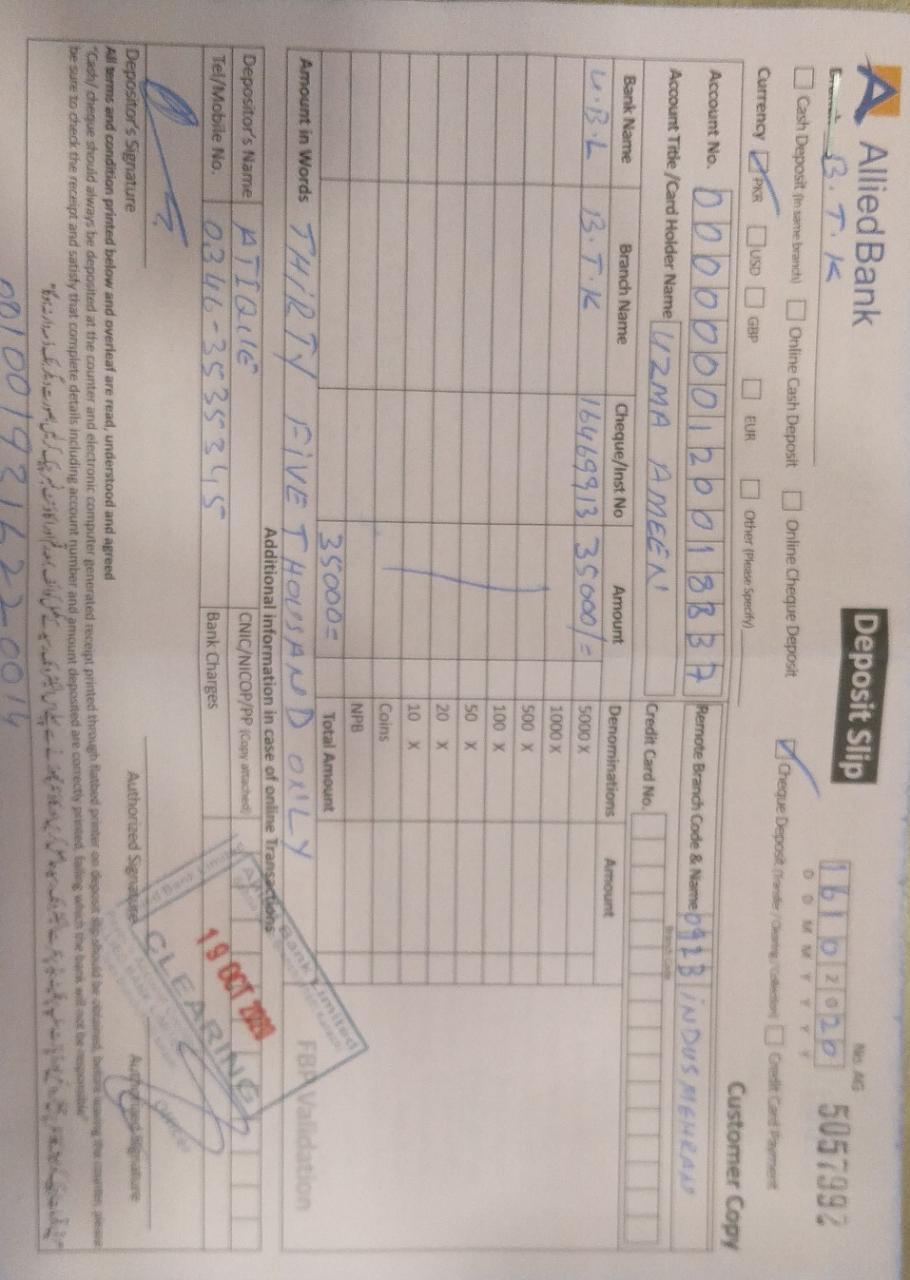 Allied Bank
Deposit Slip
No. AG 5057992
B.T.K
16102020
D D M M Y Y Y Y
Customer Copy
Cash Deposit (In same branch) Online Cash Deposit Online Cheque Deposit Cheque Deposit (Transfer / Clearing / Collection) Credit Card Payment
Currency PKR USD GBP EUR Other (Please Specify)
Account No. 0000000120018837 Remote Branch Code & Name 0923 INDUS MEHRAN
Branch Code
Account Title /Card Holder Name UZMA AMEEN Credit Card No.
Bank Name Branch Name Cheque/Inst No Amount Denominations Amount
U.B.L B.T.K 16469913 35000/= 5000 X
1000 X
500 X
100 X
50 X
20 X
10 X
Coins
NPB
35000= Total Amount
Amount in Words THIRTY FIVE THOUSAND ONLY
FBP Validation
Additional information in case of online Transactions
Depositor's Name ATIQUE CNIC/NICOP/PP (Copy attached)
Tel/Mobile No. 0346-3535345 Bank Charges
Allied Bank Limited
19 OCT 2020
CLEARING
Depositor's Signature Authorized Signature Authorized Signature
All terms and condition printed below and overleaf are read, understood and agreed
"Cash/ cheque should always be deposited at the counter and electronic computer generated receipt printed through flatbed printer on deposit slip should be obtained, before leaving the counter, please
be sure to check the receipt and satisfy that complete details including account number and amount deposited are correctly printed, failing which the bank will not be responsible"